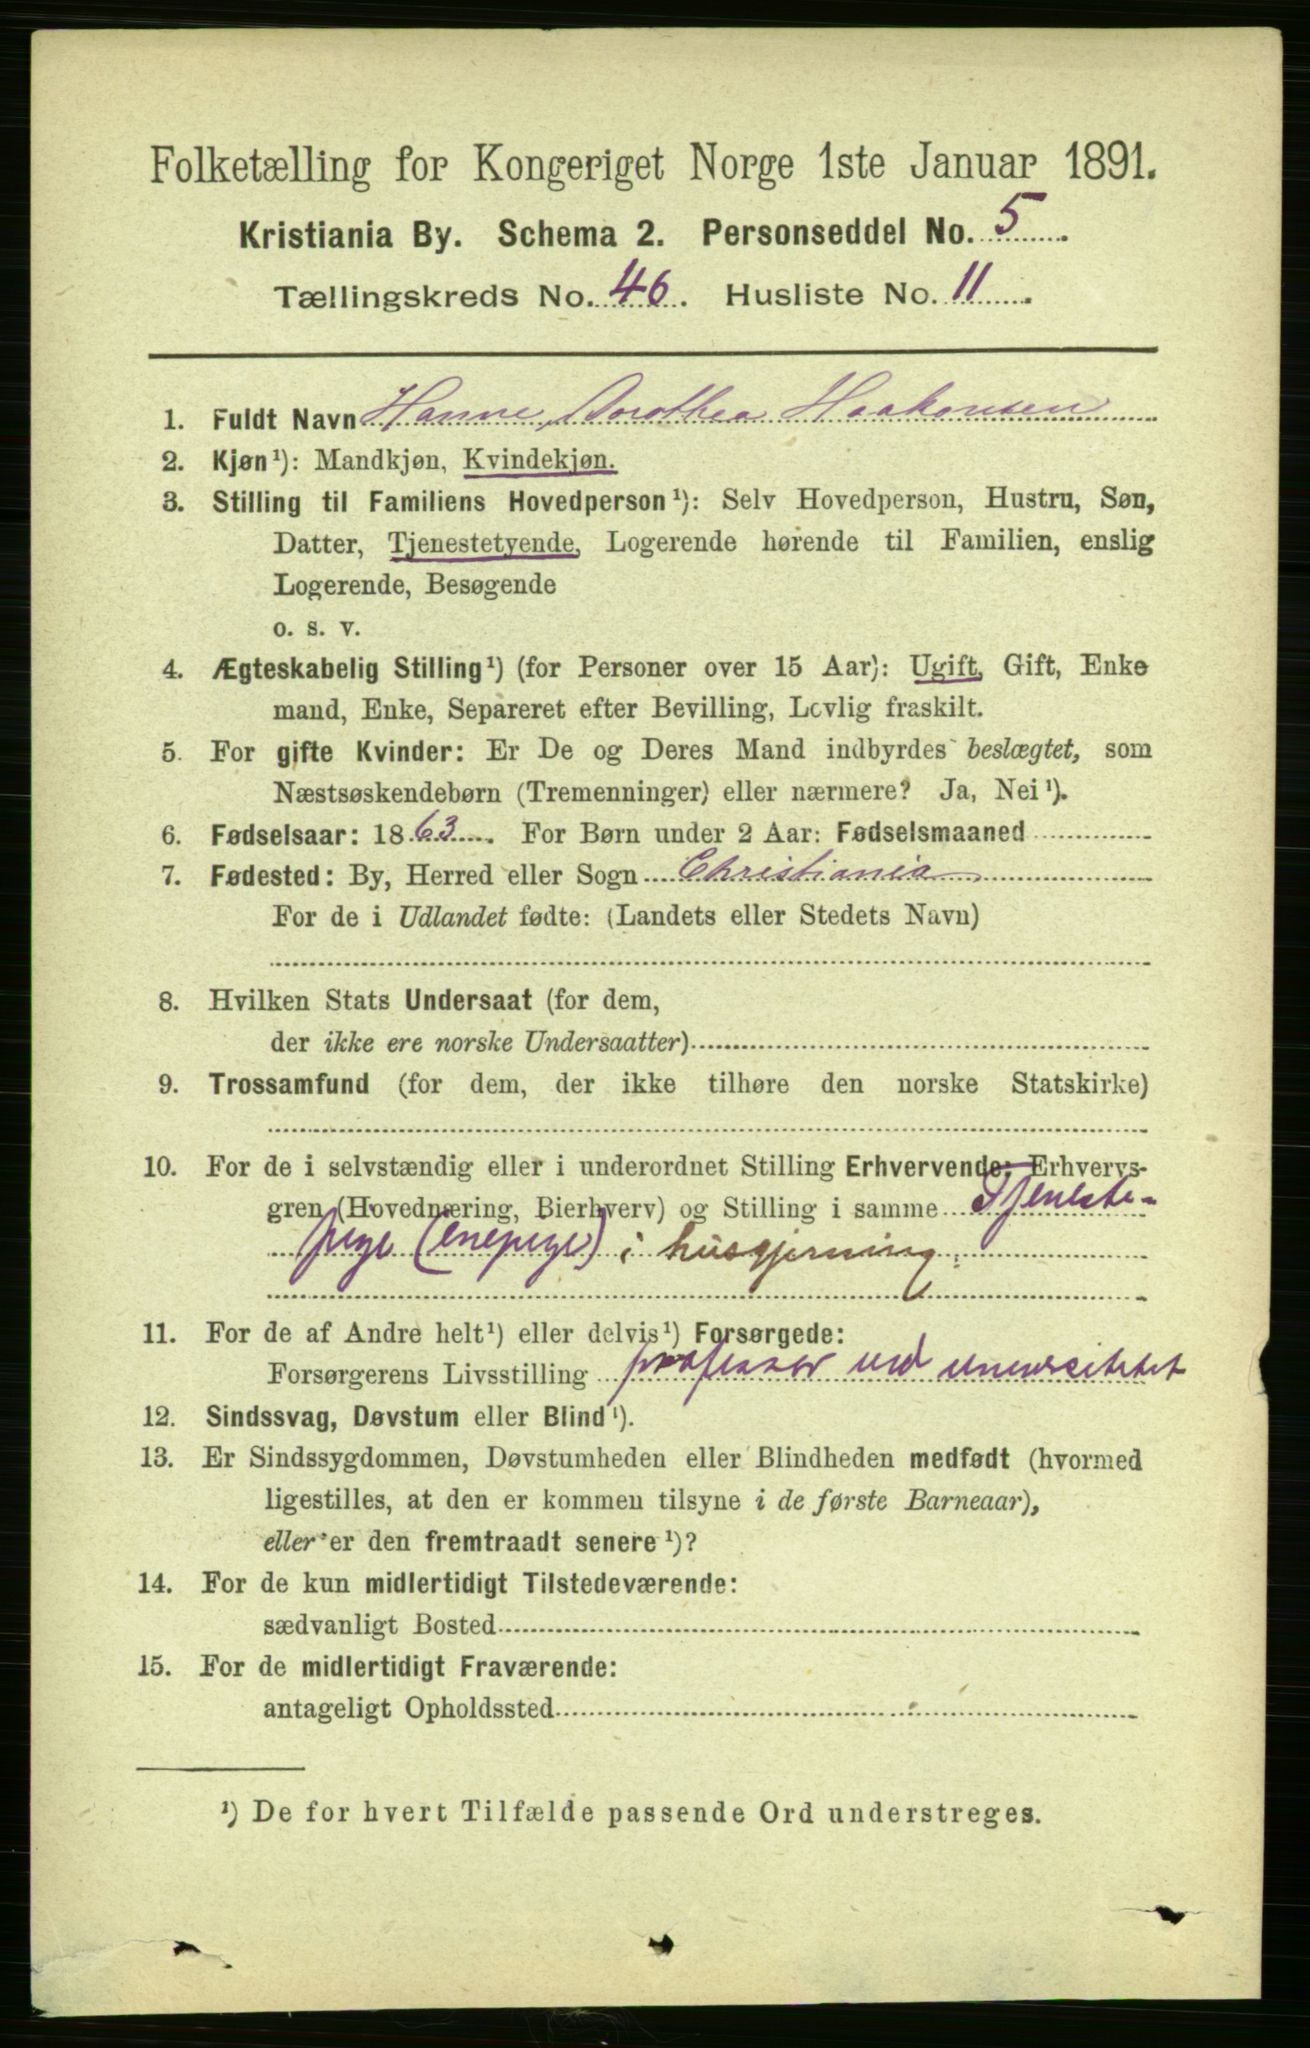 Folketælling for Kongeriget Norge 1ste Januar 1891.
Kristiania By. Schema 2. Personseddel No. 5
Tællingskreds No. 46. Husliste No. 11.
1. Fuldt Navn Hanne Dorothea Haakonsen
2. Kjøn¹): Mandkjøn, Kvindekjøn.
3. Stilling til Familiens Hovedperson¹): Selv Hovedperson, Hustru, Søn,
Datter, Tjenestetyende, Logerende hørende til Familien, enslig
Logerende, Besøgende
o. s. v.
4. Ægteskabelig Stilling¹) (for Personer over 15 Aar): Ugift, Gift, Enke
mand, Enke, Separeret efter Bevilling, Lovlig fraskilt.
5. For gifte Kvinder: Er De og Deres Mand indbyrdes beslægtet, som
Næstsøskendebørn (Tremenninger) eller nærmere? Ja, Nei¹).
6. Fødselsaar: 1863. For Børn under 2 Aar: Fødselsmaaned
7. Fødested: By, Herred eller Sogn Christiania
For de i Udlandet fødte: (Landets eller Stedets Navn)
8. Hvilken Stats Undersaat (for dem,
der ikke ere norske Undersaatter)
9. Trossamfund (for dem, der ikke tilhøre den norske Statskirke)
10. For de i selvstændig eller i underordnet Stilling Erhvervende: Erhvervs-
gren (Hovednæring, Bierhverv) og Stilling i samme Tjeneste-
pige (enepige) i husgjerning.
11. For de af Andre helt¹) eller delvis¹) Forsørgede:
Forsørgerens Livsstilling professor ved universitetet
12. Sindssvag, Døvstum eller Blind¹).
13. Er Sindssygdommen, Døvstumheden eller Blindheden medfødt (hvormed
ligestilles, at den er kommen tilsyne i de første Barneaar),
eller er den fremtraadt senere¹)?
14. For de kun midlertidigt Tilstedeværende:
sædvanligt Bosted
15. For de midlertidigt Fraværende:
antageligt Opholdssted
¹) De for hvert Tilfælde passende Ord understreges.